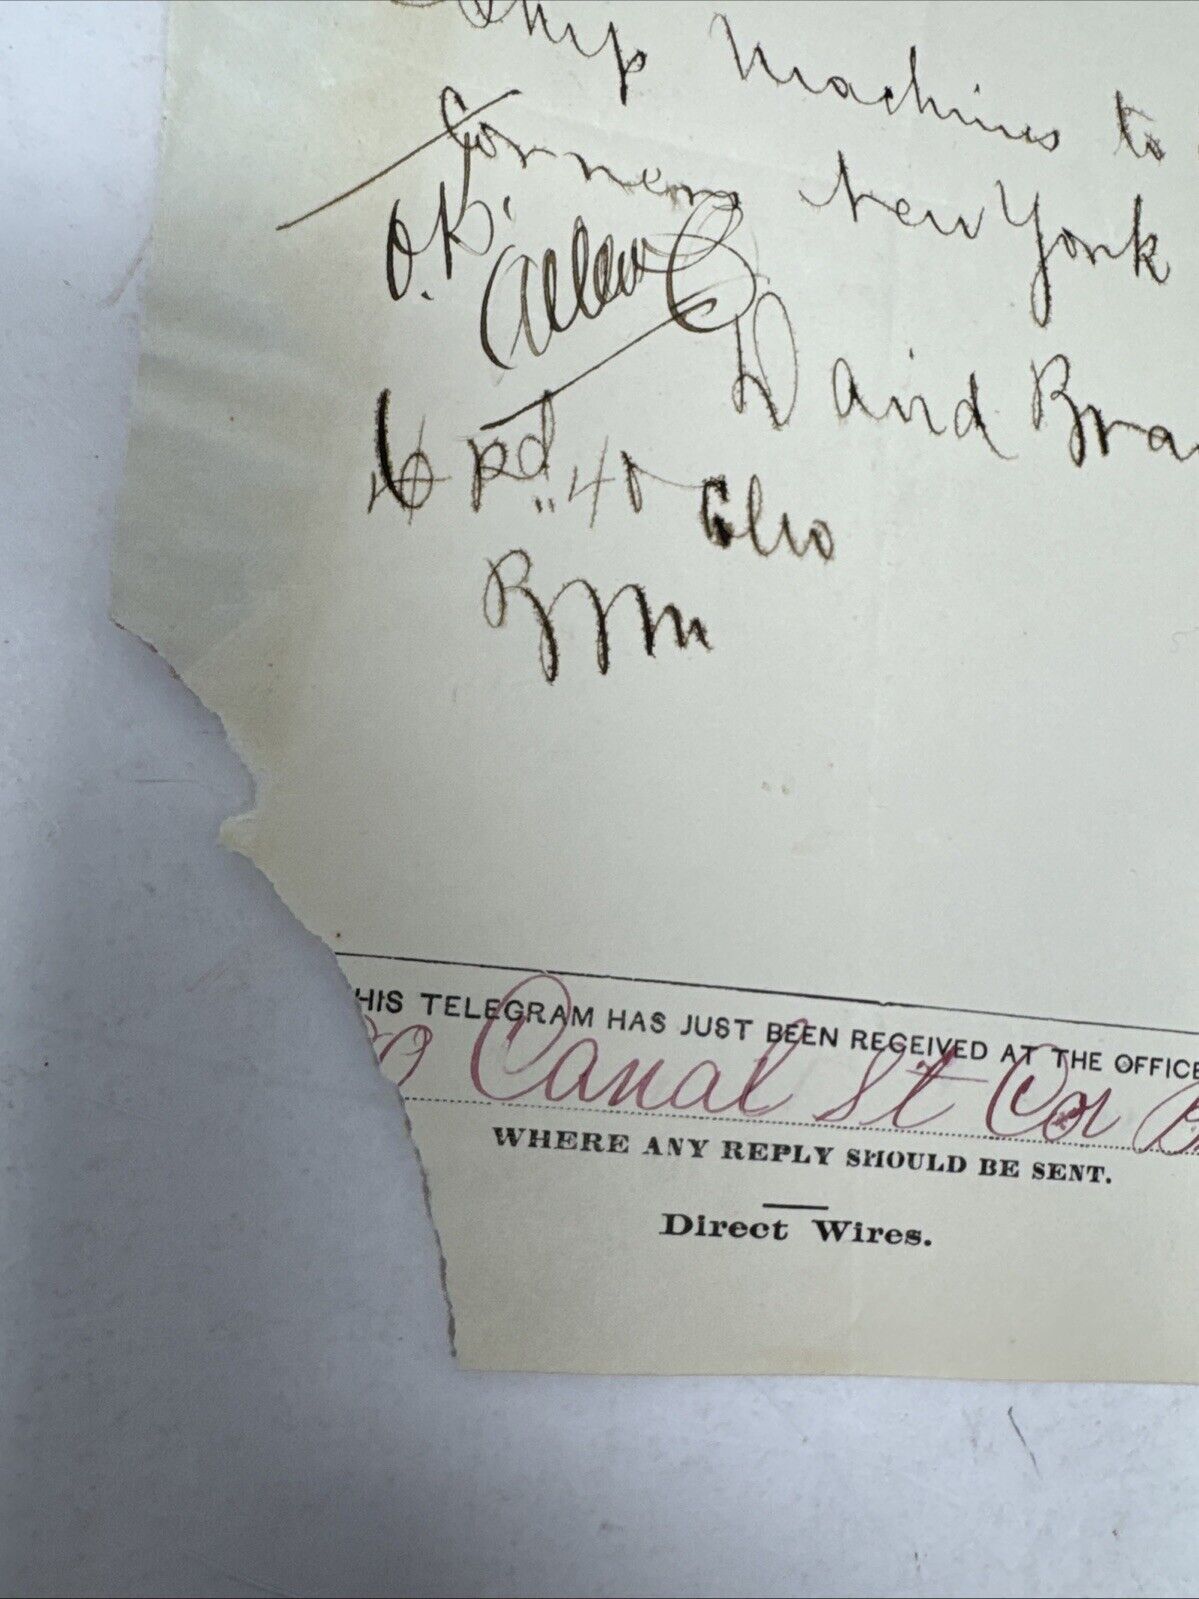 Ship Machines to
New York
O.K.
Allen
David Bra
6 pd 40
HIS TELEGRAM HAS JUST BEEN RECEIVED AT THE OFFICE
Canal St Cor
WHERE ANY REPLY SHOULD BE SENT.
Direct Wires.